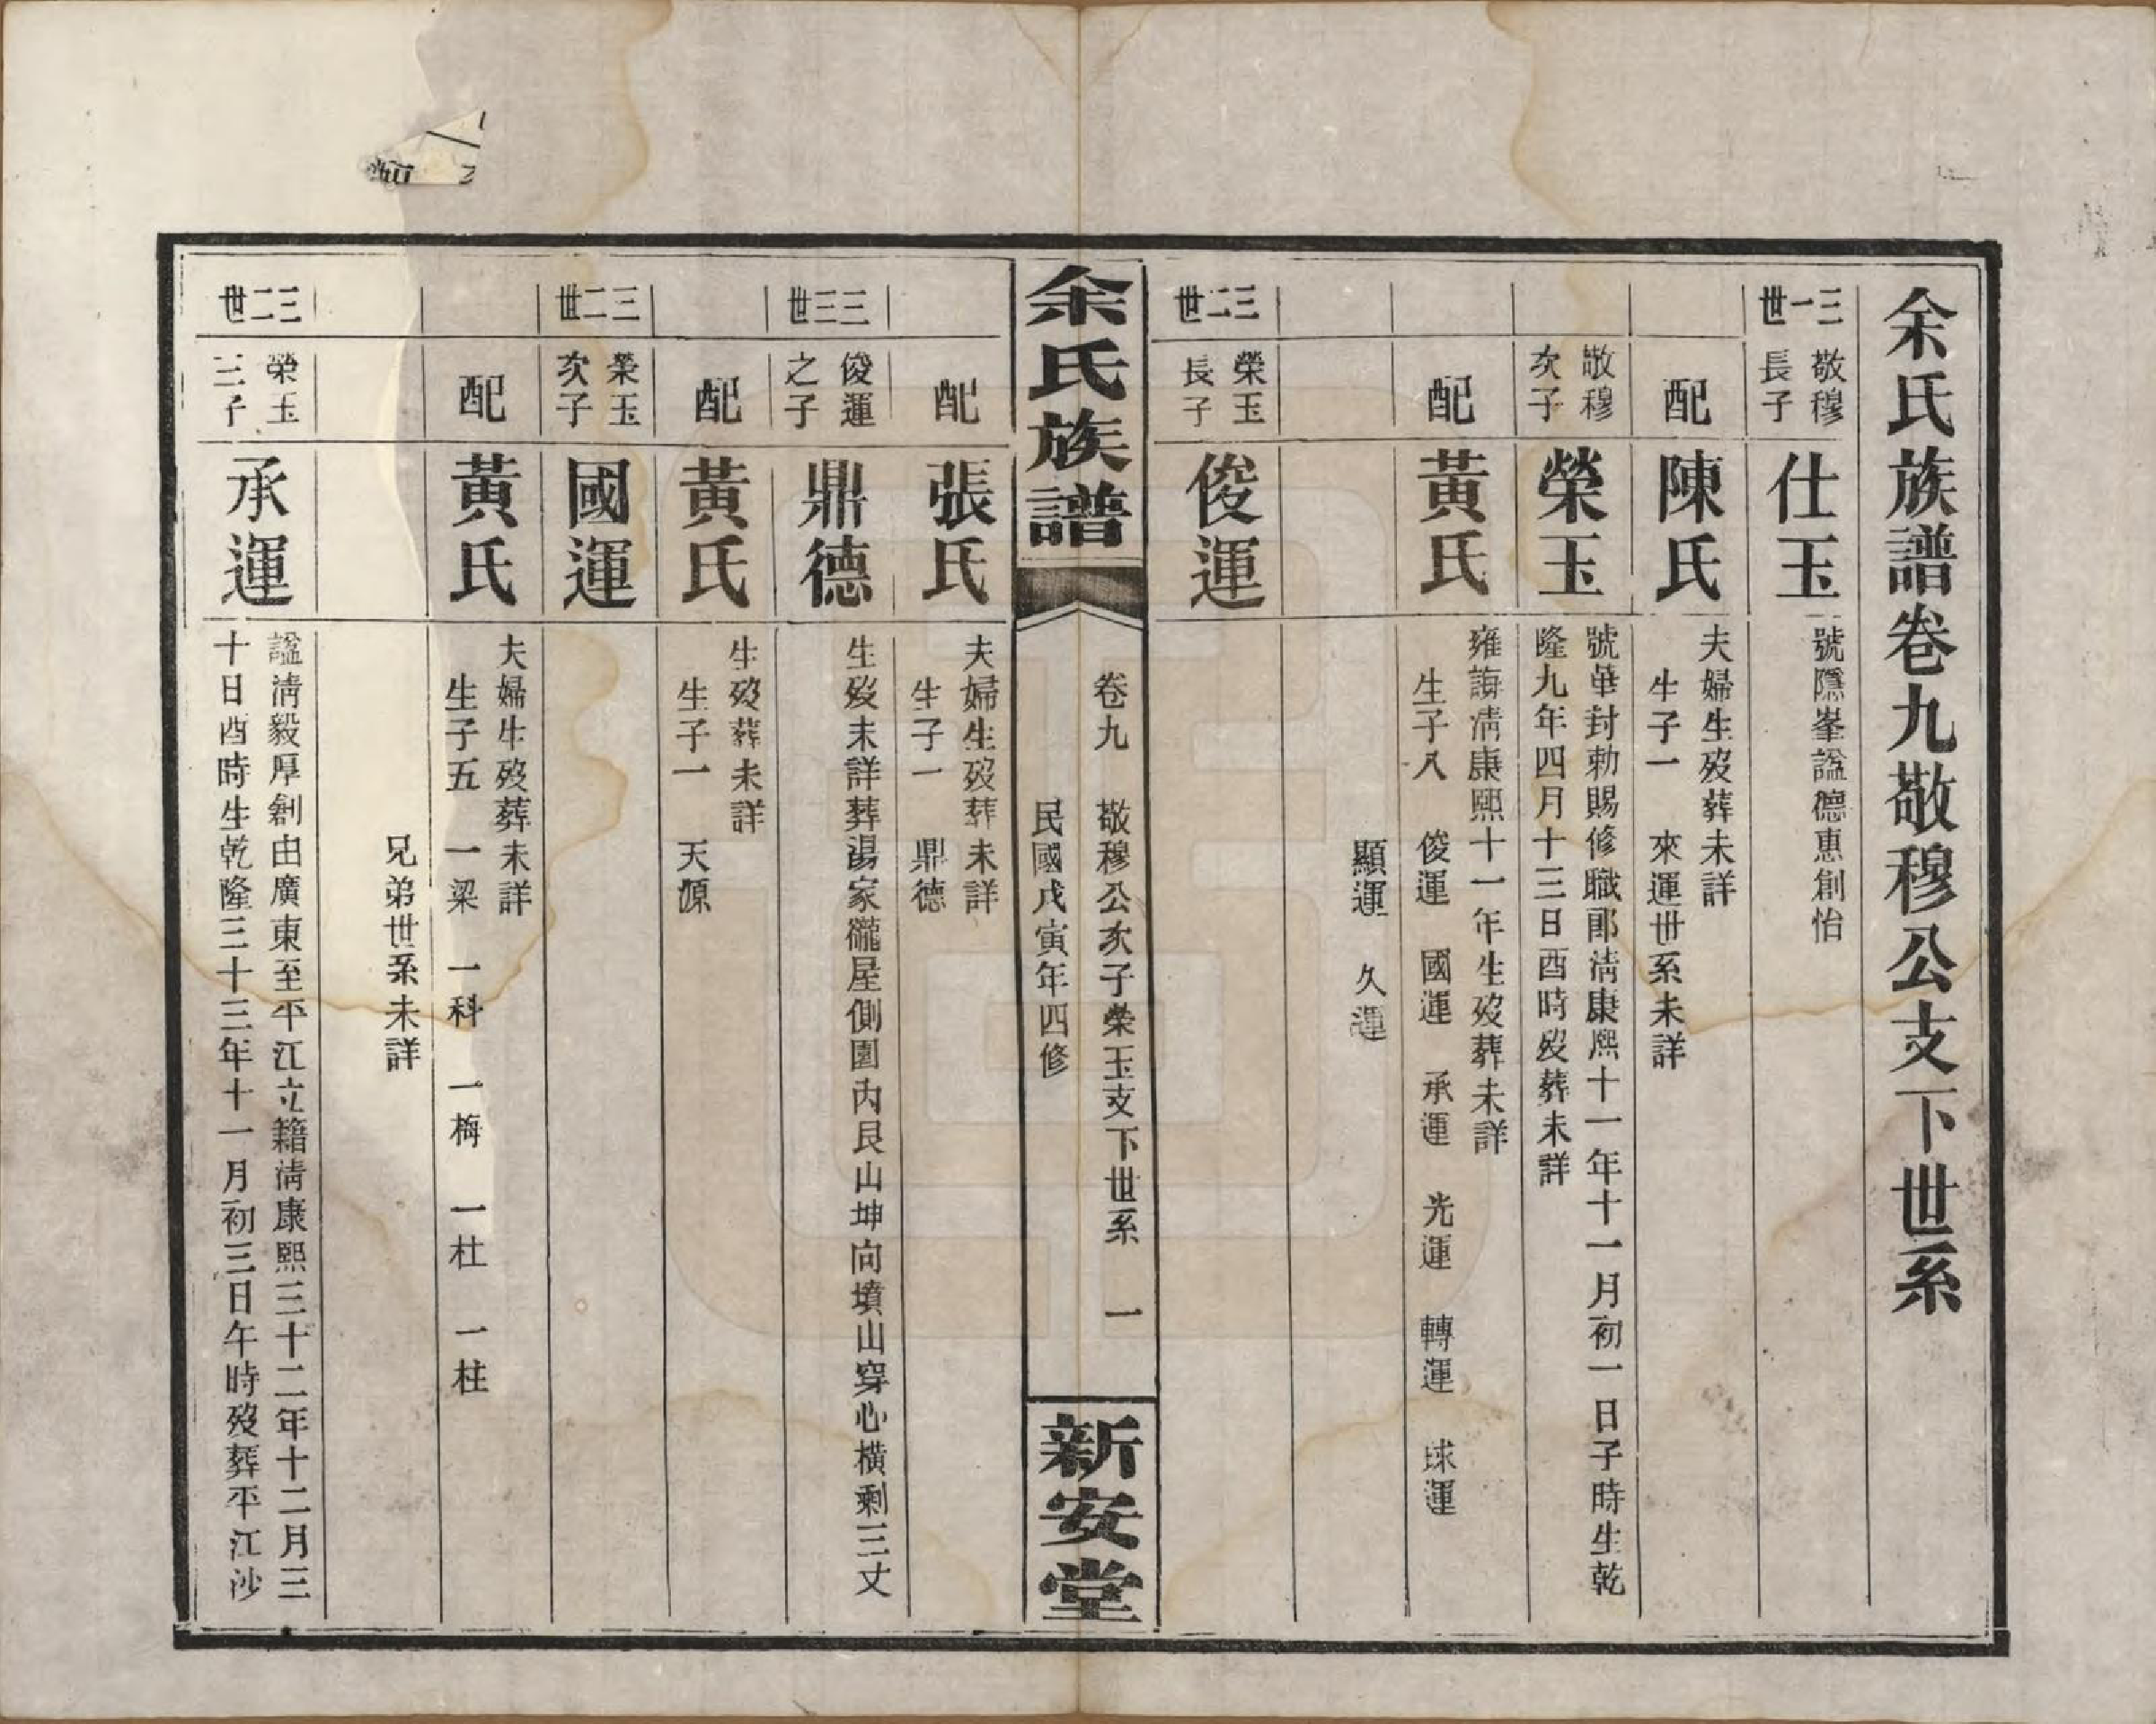 余氏族譜卷九敬穆公支下世系
三一世
敬穆
長子
仕玉
號隱峯諡德惠創怡
配
陳氏
夫婦生歿葬未詳
生子一 來運世系未詳
敬穆
次子
榮玉
號華封勅賜修職郎清康熙十一年十一月初一日子時生乾
隆九年四月十三日酉時歿葬未詳
配
黃氏
雍誨清康熙十一年生歿葬未詳
生子八 俊運 國運 承運 光運 轉運 球運
顯運 久運
三二世
榮玉
長子
俊運
余氏族譜
卷九 敬穆公次子榮玉支下世系 一
民國戊寅年四修
新安堂
配
張氏
夫婦生歿葬未詳
生子一 鼎德
三三世
俊運
之子
鼎德
生歿未詳葬湯家巃屋側園內艮山坤向墳山穿心橫剩三丈
配
黃氏
生歿葬未詳
生子一 天源
三二世
榮玉
次子
國運
配
黃氏
夫婦生歿葬未詳
生子五 一梁 一科 一梅 一杜 一柱
兄弟世系未詳
三二世
榮玉
三子
承運
諡清毅厚創由廣東至平江立籍清康熙三十二年十二月三
十日酉時生乾隆三十三年十一月初三日午時歿葬平江沙